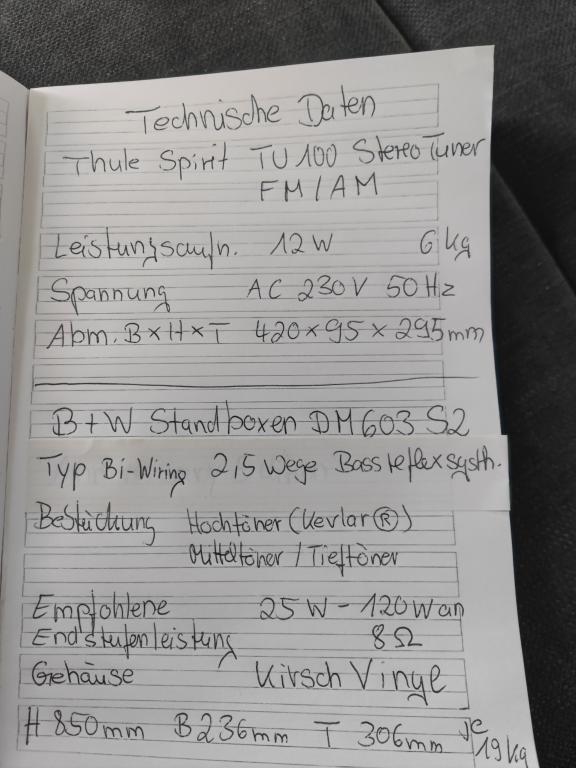 Technische Daten
Thule Spirit TU 100 Stereo Tuner
FM/AM
Leistungsaufn. 12W 6kg
Spannung AC 230V 50Hz
Abm. B×H×T 420×95×295mm
B+W Standboxen DM603 S2
Typ Bi-Wiring 2,5 Wege Bassreflexsysth.
Bestückung Hochtöner (Kevlar®)
Mitteltöner / Tieftöner
Empfohlene 25W - 120W an
Endstufenleistung 8Ω
Gehäuse Kirsch Vinyl
H 850mm B 236mm T 306mm je
19kg